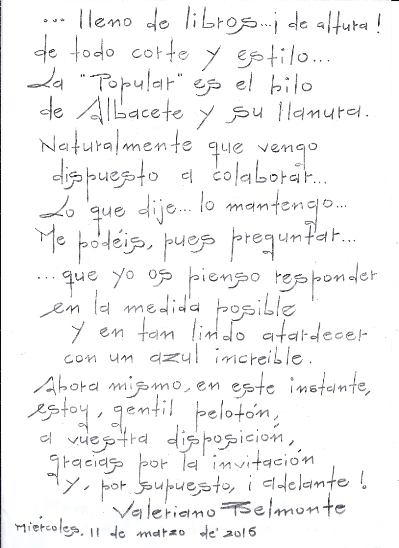 ... lleno de libros...¡ de altura !
de todo corte y estilo...
La "Popular" es el hilo
de Albacete y su llanura.
Naturalmente que vengo
dispuesto a colaborar...
Lo que dije... lo mantengo...
Me podéis, pues preguntar...
... que yo os pienso responder
en la medida posible
y en tan lindo atardecer
con un azul increible.
Ahora mismo, en este instante,
estoy, gentil pelotón,
a vuestra disposición,
gracias por la invitación
y, por supuesto, ¡ adelante !
Valeriano Belmonte
Miércoles, 11 de marzo de 2015